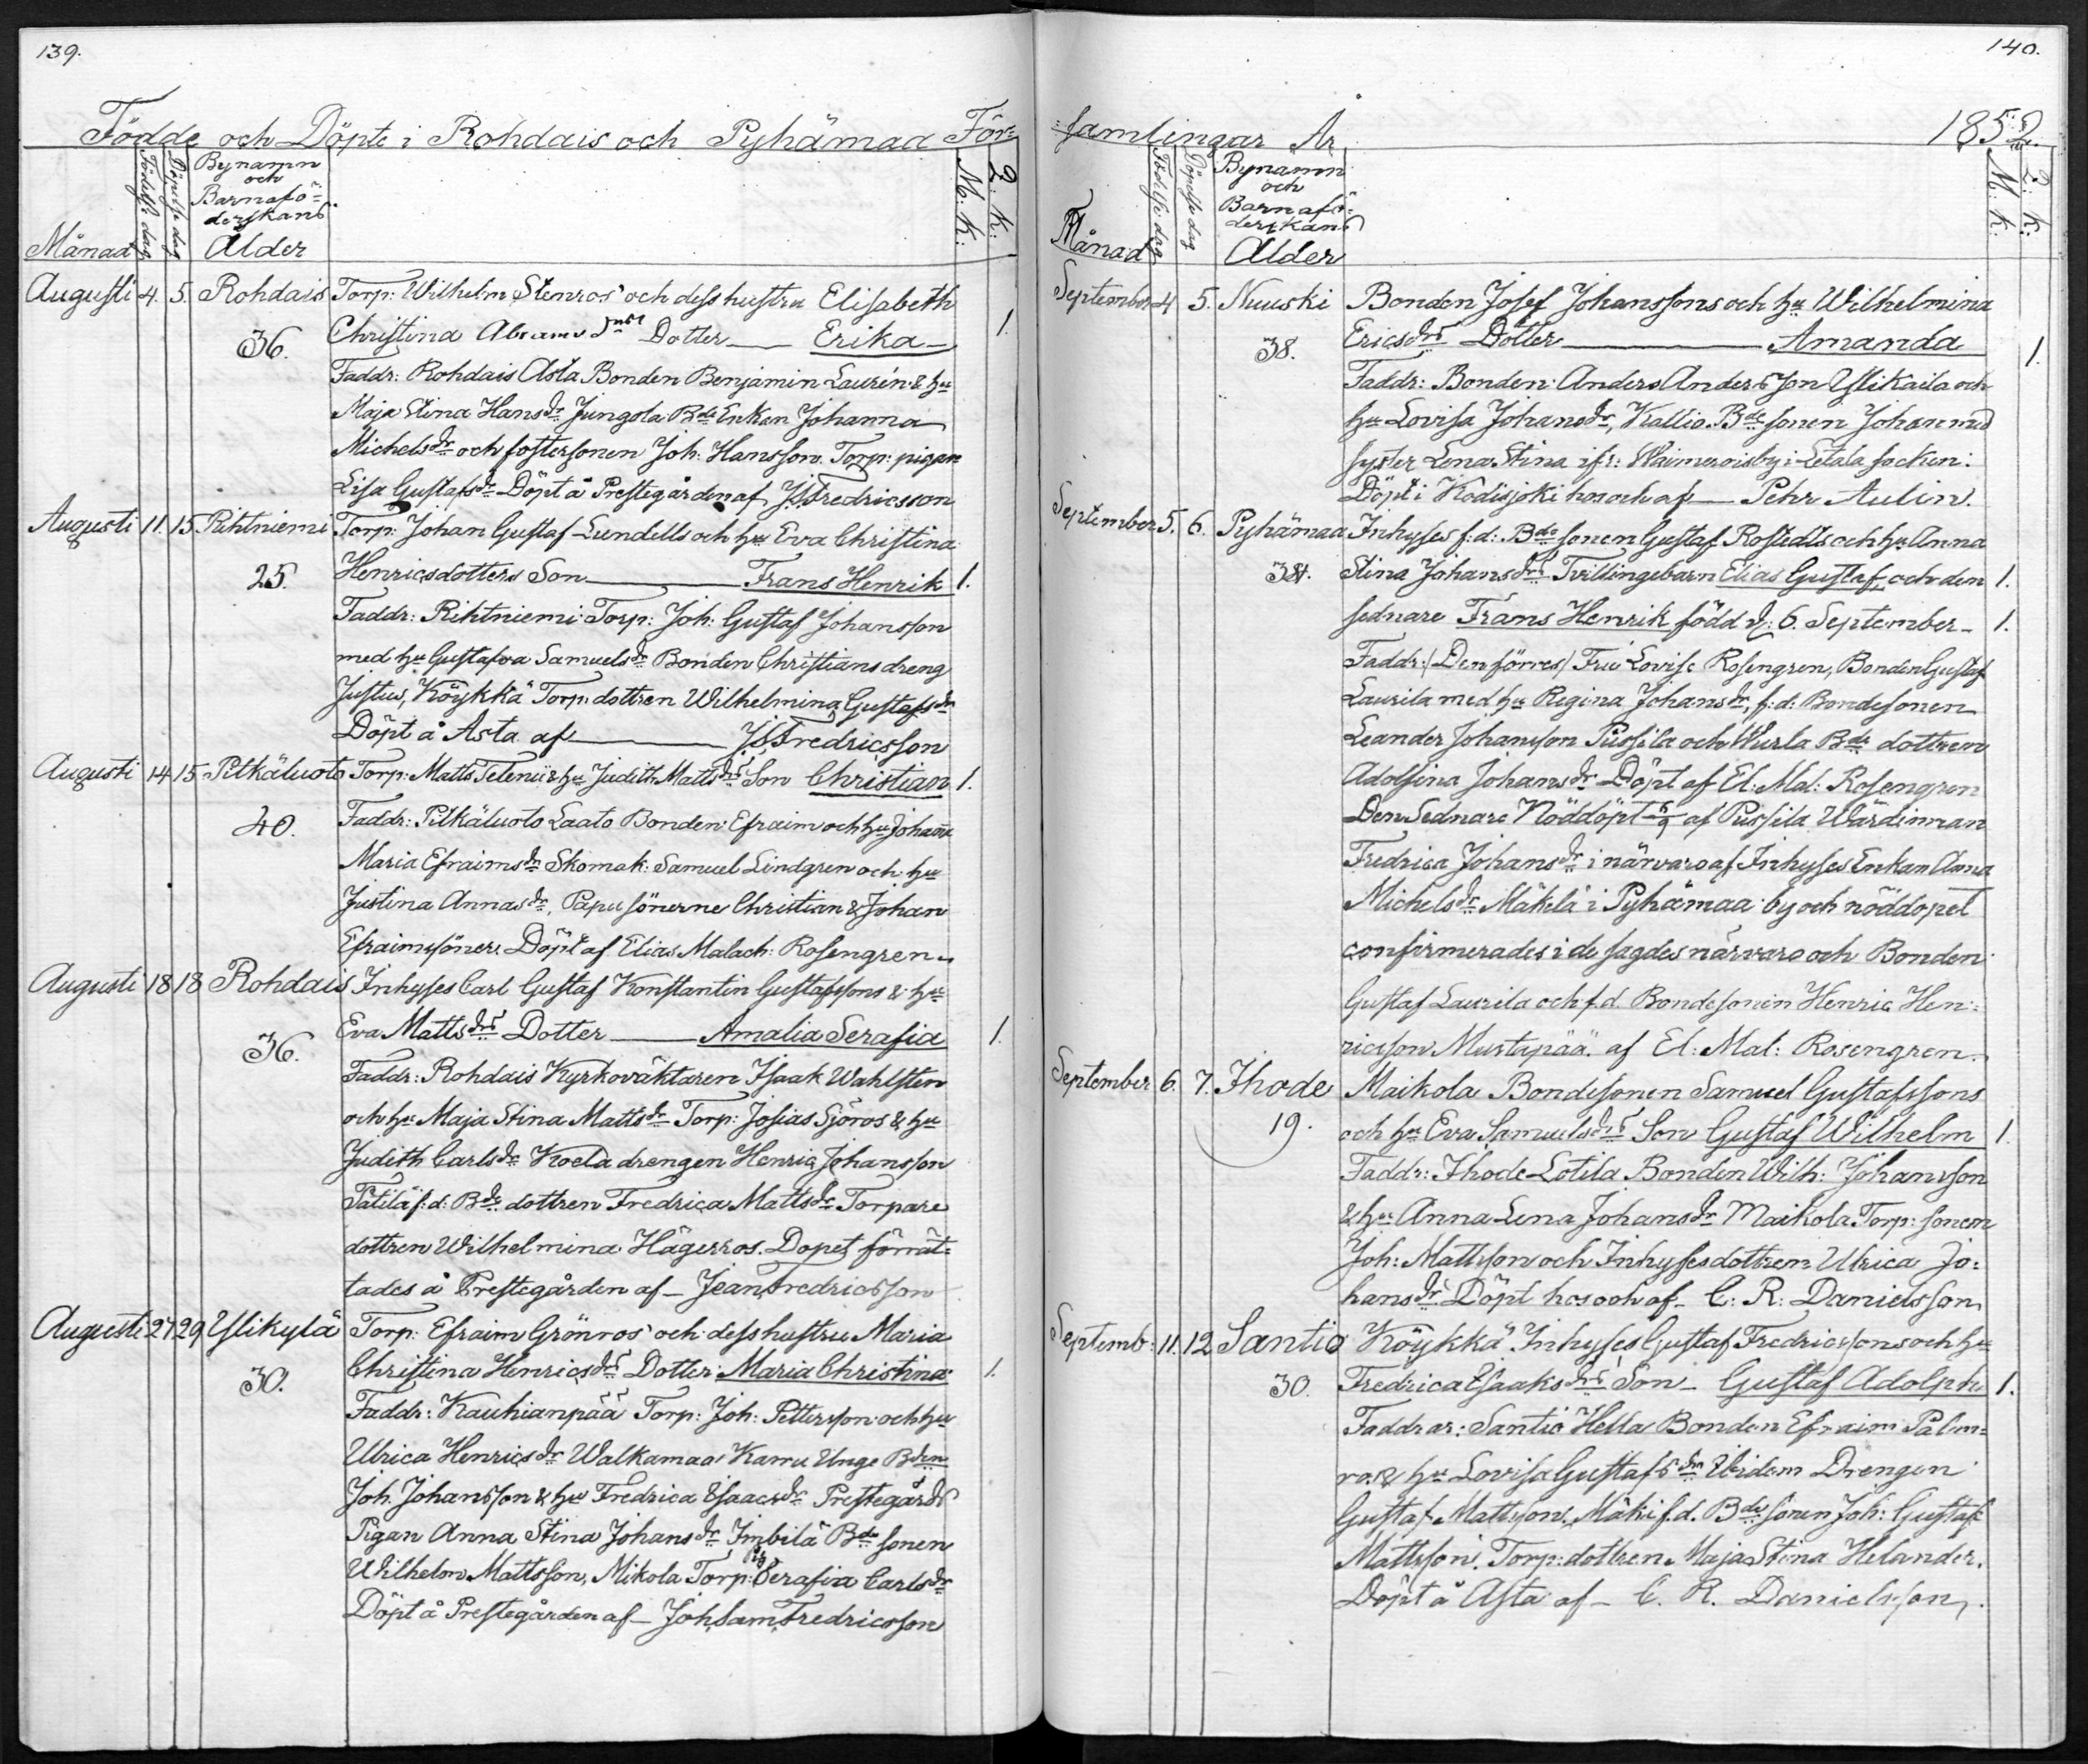 139.
Födde och Döpte i Rohdais och Pyhämaa För-
Månad
Födelse dag
Döpelse dag
Bynamn
och
Barnafö-
derskans
Ålder
M. K:
Q: K:
Augusti 4. 5. Rohdais Torp: Wilhelm Stenros' och dess hustru Elisabeth
36. Christina Abrams Dotter Erika 1.
Faddr: Rohdais Asta Bonden Benjamin Laurén & hu
Maja Stina Hansdr Jungola Bde Enkan Johanna
Michelsdr och fostersonen Joh: Hansson. Torp: pigan
Lisa Gustafsdr Döpt å Prestegården af J.S. Fredricsson
Augusti 11. 15 Rihtniemi Torp: Johan Gustaf Lundells och hu Eva Christina
25. Henricsdotters Son Frans Henrik 1.
Faddr: Rihtniemi Torp: Joh: Gustaf Johansson
med hu Gustafva Samuelsdr Bonden Christians dreng
Justus, Köykkä Torp: dottren Wilhelmina Gustafsdr
Döpt å Asta af J.S. Fredricsson
Augusti 14 15 Pitkäluoto Torp: Matts Telenii & hu Judith Mattsdrs Son Christian 1.
40. Faddr: Pitkäluoto Laato Bonden Efraim och hu Johanna
Maria Efraimsdr Skomak: Samuel Lindgren och hu
Justina Annasdr, Papu sönerne Christian & Johan
Efraimssöner. Döpt af Elias Malach: Rosengren
Augusti 18 18 Rohdais Inhyses Carl Gustaf Konstantin Gustafssons & hu
36. Eva Mattsdrs Dotter Amalia Serafia 1.
Faddr: Rohdais Kyrkoväktaren Isaak Wahlsten
och hu Maja Stina Mattsdr Torp: Josias Sjöros & hu
Judith Carlsdr Koela drengen Henric Johansson
Pätilä f:d: Bde dottren Fredrica Mattsdr Torpare
dottren Wilhelmina Hägerros. Dopet förrät-
tades å Prestegården af Jean Fredricsson
Augusti 27 29 Ylikylä Torp: Efraim Grönros' och dess hustru Maria
30. Christina Henricsdrs Dotter Maria Christina 1.
Faddr: Kauhianpää Torp: Joh: Pettersson och hu
Ulrica Henricsdr Walkamaa Karru Unge Bden
Joh. Johansson & hu Fredrica Isaacsdr Prestegårds
Pigan Anna Stina Johansdr Imbilä Bde sonen
Wilhelm Mattsson, Mikola Torp: Serafia Carlsdr
Döpt å Prestegården af Joh. Sam. Fredricsson
140.
samlingar År 1852.
Månad
Födelse dag
Döpelse dag
Bynamn
och
Barnafö-
derskans
Ålder
M: K:
Q: K:
September 4 5. Nuuski Bonden Josef Johanssons och hu Wilhelmina
38. Ericsdrs Dotter Amanda 1.
Faddr: Bonden Anders Andersson Ylikaila och
hu Lovisa Johansdr, Kallio Bde sonen Johan med
syster Lena Stina ifr: Waimeroisby i Letala socken:
Döpt i Kodisjoki hos och af Pehr Aulin.
September 5. 6. Pyhämaa Inhyses f:d: Bde sonen Gustaf Rostedts och hu Anna
38. Stina Johansdrs Tvillingebarn Elias Gustaf, och den 1.
sednare Frans Henrik född d: 6. September 1.
Faddr: (Den förres) Fru Lovise Rosengren, Bonden Gustaf
Laurila med hu Regina Johansdr, f:d: Bondesonen
Leander Johansson Pussila och Wurla Bde dottren
Adolfina Johansdr Döpt af El: Mal: Rosengren
Den Sednare Nöddöpt 6/9 af Pussila Wärdinnan
Fredrica Johansdr i närvaro af Inhyses Enkan Anna
Michelsdr Mäkelä i Pyhämaa by och nöddopet
confirmerades i de sagdes närvaro och Bonden
Gustaf Laurila och f.d. Bondesonen Henric Hen-
ricsson Mustapää. af El: Mal: Rosengren.
September 6. 7. Ihode Maikola Bondesonen Samuel Gustafssons
19. och hu Eva Samuelsdrs Son Gustaf Wilhelm 1.
Faddr: Ihode Lotila Bonden Wilh: Johansson
& hu Anna Lena Johansdr Maikola Torp: sonen
Joh: Mattsson och Inhysesdottren Ulrica Jo-
hansdr Döpt hos och af C: R: Danielsson
Septemb: 11. 12 Santio Köykkä Inhyses Gustaf Fredricssons och hu
30. Fredrica Isaaksdrs Son Gustaf Adolph 1.
Faddrar: Santio Hella Bonden Efraim Palm-
ros & hu Lovisa Gustafsdr Ibidem Drengen
Gustaf Mattsson, Mäki f.d. Bde sonen Joh: Gustaf
Mattsson. Torp: dottren Maja Stina Helander.
Döpt å Asta af C. R. Danielsson.